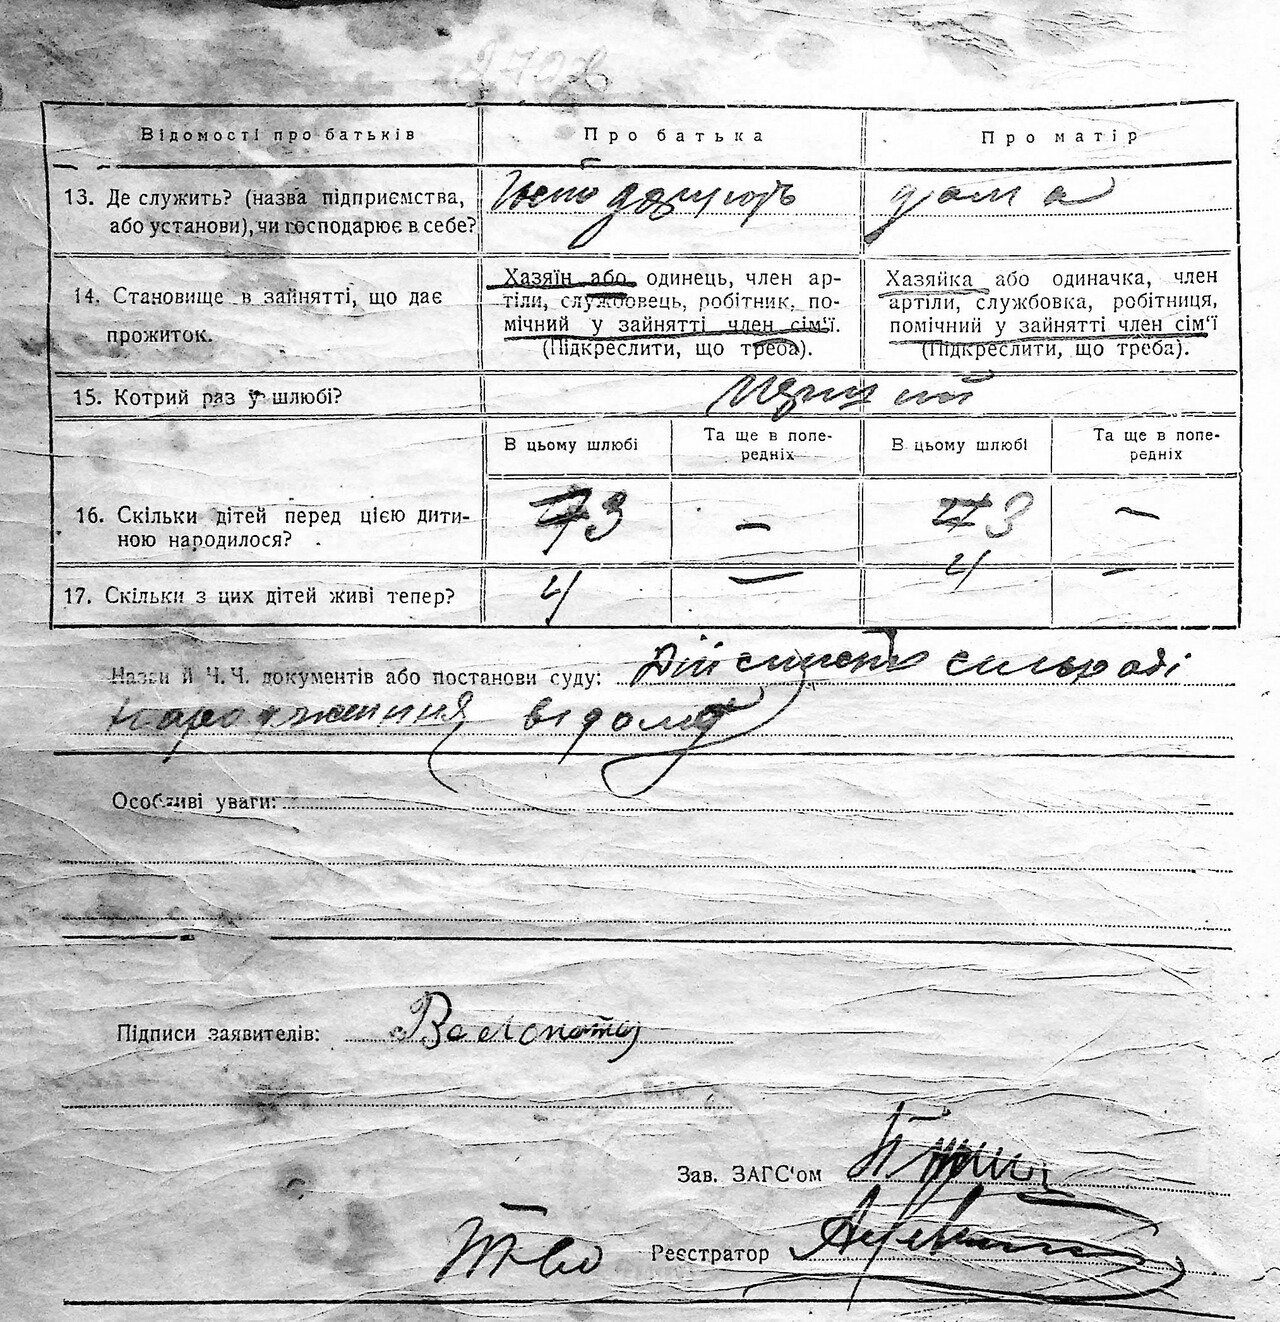 Відомості про батьків Про батька Про матір
13. Де служить? (назва підприємства, або установи), чи господарює в себе? Господарують дома
14. Становище в зайнятті, що дає прожиток.
Хазяїн або одинець, член ар-
тіли, службовець, робітник, по-
мічний у зайнятті член сім'ї.
(Підкреслити, що треба).
Хазяйка або одиначка, член
артіли, службовка, робітниця,
помічний у зайнятті член сім'ї
(Підкреслити, що треба).
15. Котрий раз у шлюбі?
В цьому шлюбі Та ще в попе-
редніх В цьому шлюбі Та ще в попе-
редніх
16. Скільки дітей перед цією дити-
ною народилося? 3 — 3 —
17. Скільки з цих дітей живі тепер? 4 — 4 —
Назви й Ч.Ч. документів або постанови суду: Дійсність сільраді
народження відома
Особливі уваги:
Підписи заявителів:
Зав. ЗАГС'ом
Реєстратор